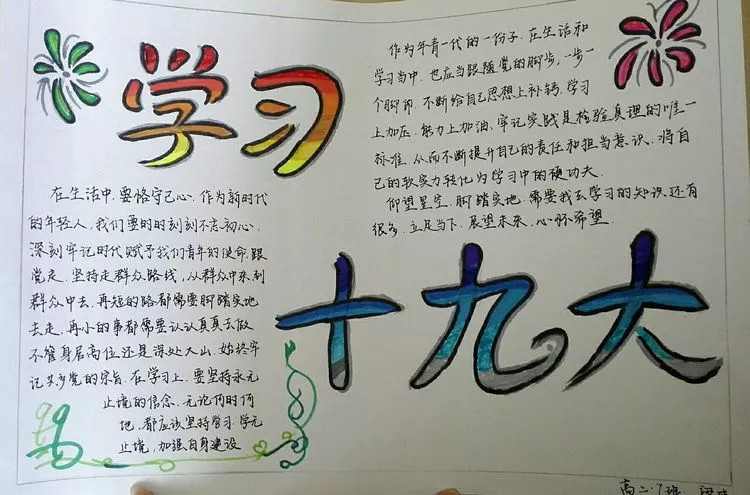 学习
在生活中,要恪守己心,作为新时代
的年轻人,我们要的时刻刻不忘初心,
深刻牢记时代赋予我们青年的使命,跟
党走,坚持走群众路线,从群众中来,到
群众中去,再短的路都需要脚踏实地
去走,再小的事都需要认认真真去做
不管身居高位还是深处大山,始终牢
记共产党的宗旨,在学习上,要坚持永无
止境的信念,无论何时何
地,都应该坚持学习,学无
止境,加强自身建设
作为年青一代的一份子,在生活和
学习当中,也应当跟随党的脚步,一步一
个脚印,不断给自己思想上补钙,学习
上加压,能力上加油,牢记实践是检验真理的唯一
标准,从而不断提升自己的责任和担当意识,将自
己的软实力转化为学习中的硬功夫。
仰望星空,脚踏实地,需要我去学习的知识,还有
很多,立足当下,展望未来,心怀希望
十九大
高二.7班